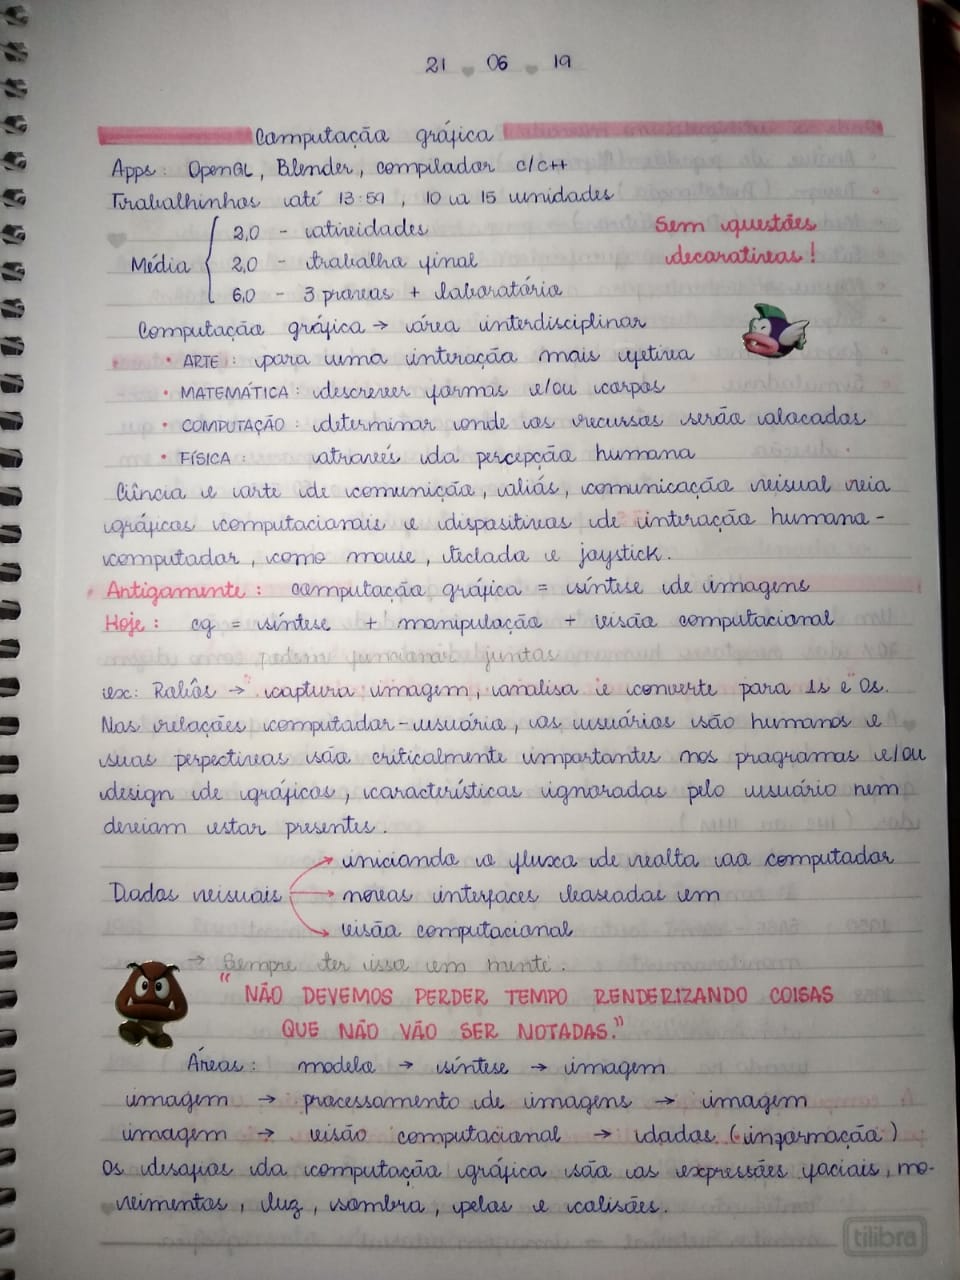 21 06 19
Computação gráfica
Apps: OpenGL, Blender, compilador c/c++
Trabalhinhos até 13:59, 10 a 15 unidades
2,0 - atividades
Sem questões
Média
2,0 - trabalho final
decorativas!
6,0 - 3 provas + laboratório
Computação gráfica → área interdisciplinar
• ARTE: para uma interação mais efetiva
• MATEMÁTICA: descrever formas e/ou corpos
• COMPUTAÇÃO: determinar onde os recursos serão alocados
• FÍSICA: através da percepção humana
Ciência e arte de comunição, aliás, comunicação visual via
gráficos computacionais e dispositivos de interação humano-
computador, como mouse, teclado e joystick.
Antigamente: computação gráfica = síntese de imagens
Hoje: cg = síntese + manipulação + visão computacional
podem funcionar juntas
ex: Robôs → captura imagem, analisa e converte para 1s e 0s.
Nas relações computador-usuário, os usuários são humanos e
suas perpectivas são criticalmente importantes nos programas e/ou
design de gráficos, características ignoradas pelo usuário nem
deveiam estar presentes.
iniciando o fluxo de volta ao computador
Dados visuais
novas interfaces baseadas em
visão computacional
→ Sempre ter isso em mente.
"NÃO DEVEMOS PERDER TEMPO RENDERIZANDO COISAS
QUE NÃO VÃO SER NOTADAS."
Áreas: modelo → síntese → imagem
imagem → processamento de imagens → imagem
imagem → visão computacional → dados (informação)
Os desafios da computação gráfica são as expressões faciais, mo-
vimentos, luz, sombra, pelos e colisões.
tilibra